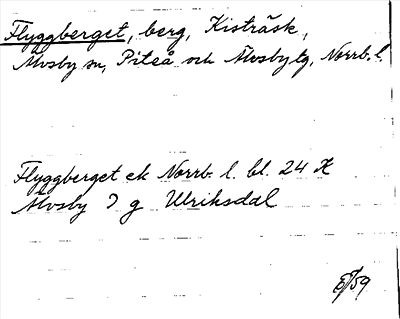 Flyggberget, berg, Kisträsk,
Älvsby sn, Piteå och Älvsby tg, Norrb. l.
Flyggberget ek Norrb. l. bl. 24 X
Älvsby I g Ulriksdal
59